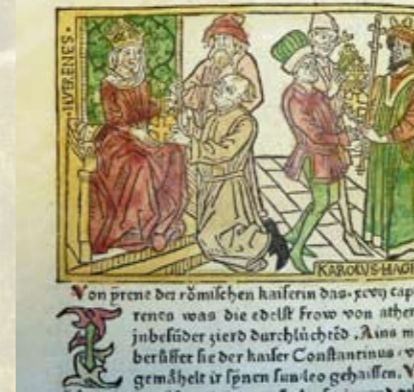 HVERENES
KAROLVS·MAG
Von yrene der römischen kaiserin das·xcvij cap
Irenes was die edelst frow von athen
jnbesůder zierd durchlüchted. Ains m
berůffet sie der kaiser Constantinus·
gemåhelt ir synen sun·leo gehaissen. V